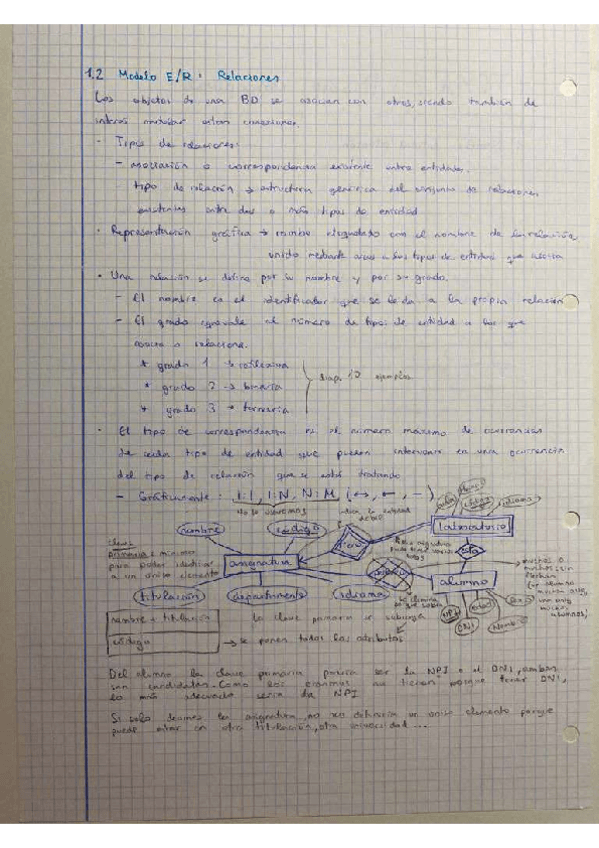 1.2 Modelo E/R: Relaciones
Los objetos de una BD se asocian con otros, siendo también de
interés modelar estas conexiones.
- Tipos de relaciones:
- asociación o correspondencia existente entre entidades.
- tipo de relación → estructura genérica del conjunto de relaciones
existentes entre dos o más tipos de entidad
· Representación gráfica → rombo etiquetado con el nombre de la relación
unido mediante arcos a los tipos de entidad que asocia
· Una relación se define por su nombre y por su grado.
- El nombre es el identificador que se le da a la propia relación
- El grado equivale al número de tipos de entidad a los que
asocia o relaciona.
* grado 1 → reflexiva
* grado 2 → binaria
* grado 3 → ternaria
diap. 12 ejemplos
· El tipo de correspondencia es el número máximo de ocurrencias
de cada tipo de entidad que pueden intervenir en una ocurrencia
del tipo de relación que se está tratando
- Gráficamente: 1:1, 1:N, N:M (↔, ←, -)
No se
idioma
laboratorio
nombre
código
tiene
esta
asignatura
alumno
clave
primaria: mínimo
para poder identificar
a un único elemento
titulación
departamento
idioma
NPI
DNI
edad
nombre
nombre + titulación
la clave primaria se subraya
código
→ se ponen todos los atributos
Del alumno la clave primaria podría ser la NPI o el DNI, ambas
son candidatas. Como los erasmus no tienen porque tener DNI,
lo más adecuado sería la NPI
Si solo decimos la asignatura, no se definiría un único elemento porque
puede estar en otra titulación, otra universidad ...